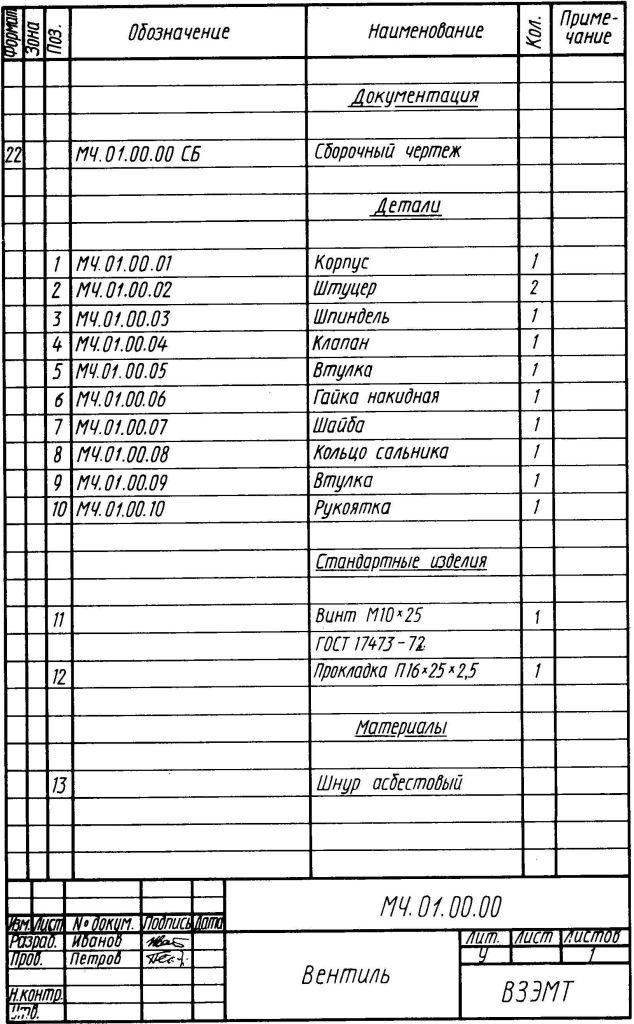 Формат Зона Поз. Обозначение Наименование Кол. Приме-
чание
Документация
22 МЧ.01.00.00 СБ Сборочный чертеж
Детали
1 МЧ.01.00.01 Корпус 1
2 МЧ.01.00.02 Штуцер 2
3 МЧ.01.00.03 Шпиндель 1
4 МЧ.01.00.04 Клапан 1
5 МЧ.01.00.05 Втулка 1
6 МЧ.01.00.06 Гайка накидная 1
7 МЧ.01.00.07 Шайба 1
8 МЧ.01.00.08 Кольцо сальника 1
9 МЧ.01.00.09 Втулка 1
10 МЧ.01.00.10 Рукоятка 1
Стандартные изделия
11 Винт М10×25 1
ГОСТ 17473-72
12 Прокладка П16×25×2,5 1
Материалы
13 Шнур асбестовый
МЧ.01.00.00
Изм. Лист № докум. Подпись Дата
Разраб. Иванов
Пров. Петров
Н.контр.
Утв.
Вентиль
Лит. Лист Листов
У 1
ВЗЭМТ